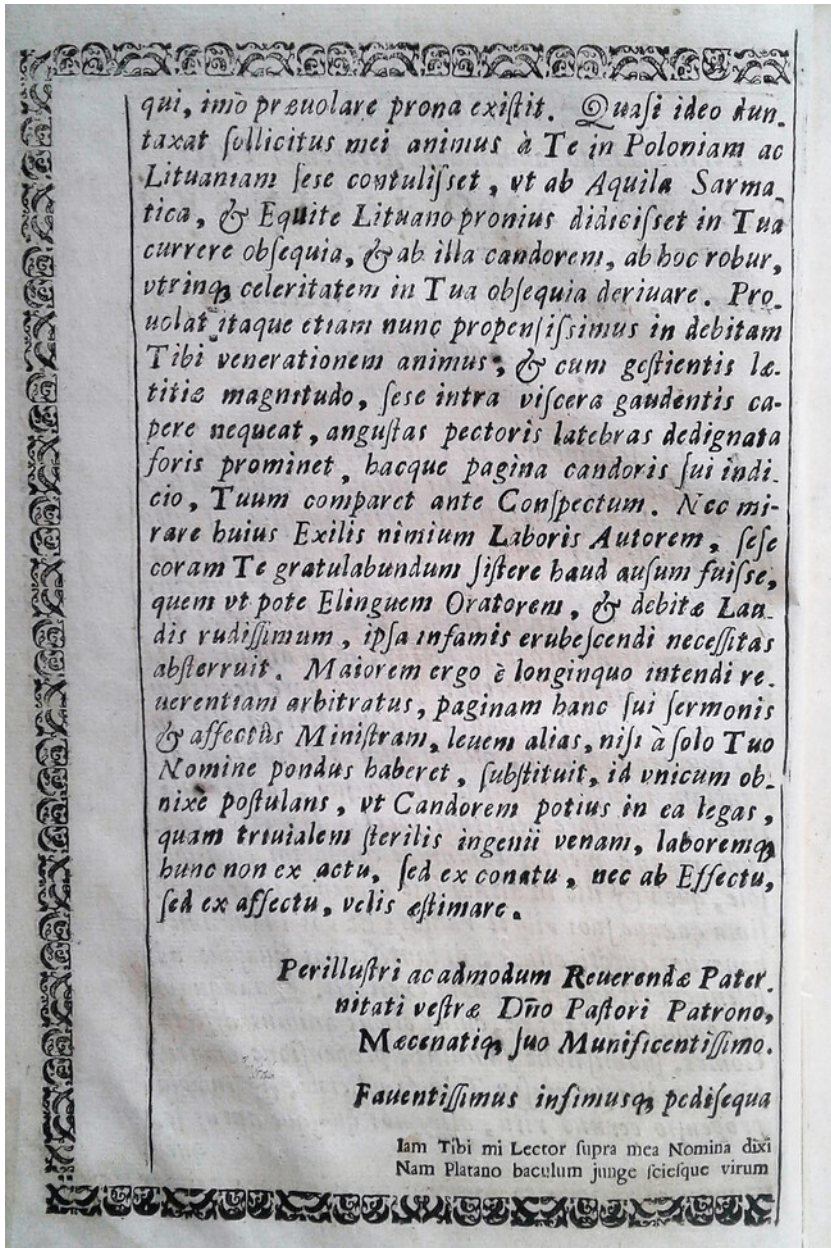 qui, imò præuolare prona existit. Quasi ideo dun-
taxat sollicitus mei animus à Te in Poloniam ac
Lituaniam sese contulisset, vt ab Aquila Sarma-
tica, & Equite Lituano pronius didicisset in Tua
currere obsequia, & ab illa candorem, ab hoc robur,
vtrinq; celeritatem in Tua obsequia deriuare. Pro-
uolat itaque etiam nunc propensissimus in debitam
Tibi venerationem animus; & cum gestientis læ-
titiæ magnitudo, sese intra viscera gaudentis ca-
pere nequeat, angustas pectoris latebras dedignata
foris prominet, hacque pagina candoris sui indi-
cio, Tuum comparet ante Conspectum. Nec mi-
rare huius Exilis nimium Laboris Autorem, sese
coram Te gratulabundum sistere haud ausum fuisse,
quem vt pote Elinguem Oratorem, & debitæ Lau-
dis rudissimum, ipsa infamis erubescendi necessitas
absterruit. Maiorem ergo è longinquo intendi re-
uerentiam arbitratus, paginam hanc sui sermonis
& affectûs Ministram, leuem alias, nisi à solo Tuo
Nomine pondus haberet, substituit, id vnicum ob-
nixè postulans, vt Candorem potius in ea legas,
quam triuialem sterilis ingenii venam, laboremq;
hunc non ex actu, sed ex conatu, nec ab Effectu,
sed ex affectu, velis æstimare.
Perillustri ac admodum Reuerendæ Pater-
nitati vestræ Dño Pastori Patrono,
Mæcenatiq; suo Munificentissimo.
Fauentissimus infimusq; pedisequa
Iam Tibi mi Lector supra mea Nomina dixi
Nam Platano baculum junge sciesque virum